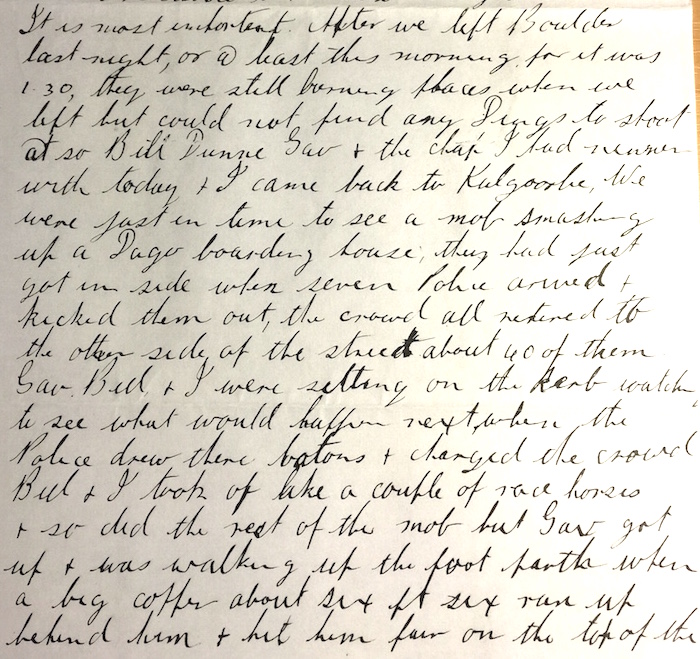 It is most important. After we left Boulder
last night, or @ least this morning, for it was
1.30, they were still burning places when we
left but could not find any Dings to shoot
at so Bill Dunne Gav & the chap I had
with today & I came back to Kalgoorlie, We
were just in time to see a mob smashing
up a Dago boarding house, they had just
got in side when seven Police arived &
kicked them out, the crowd all retired to
the other side, of the street about 40 of them
Gav, Bill, & I were sitting on the kerb watching
to see what would happen next, when the
Police drew there batons & charged the crowd
Bill & I took of like a couple of race horses
& so did the rest of the mob but Gav got
up & was walking up the foot parth when
a big copper about six ft six run up
behind him & hit him fair on the top of the